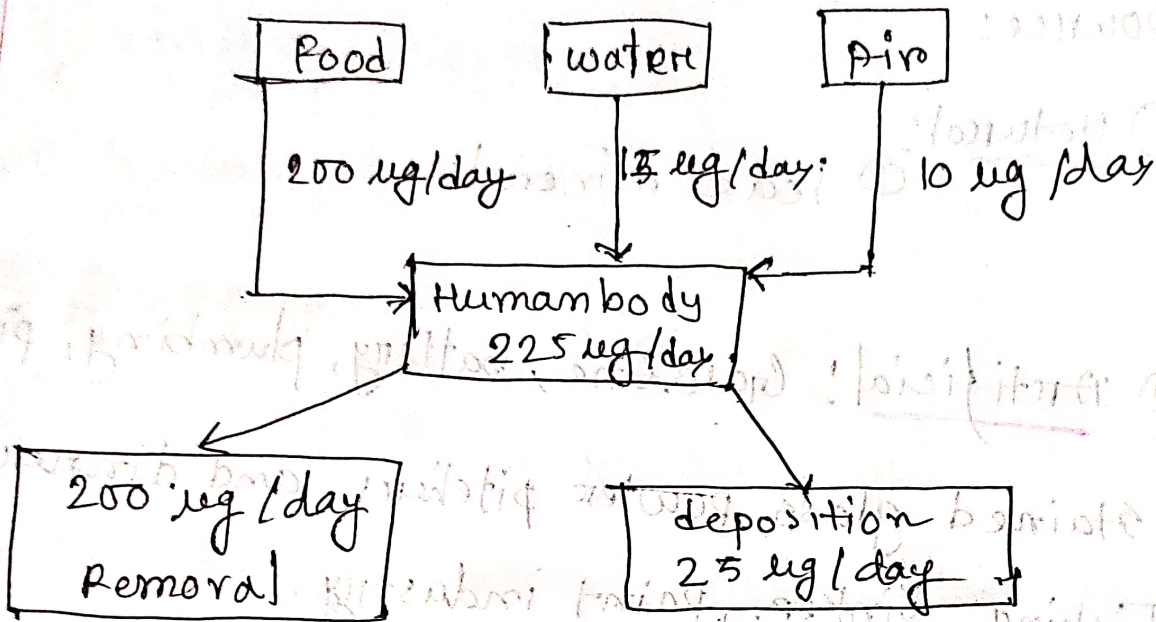 Food
water
Air
200 ug/day
15 ug/day.
10 ug/day
Human body
225 ug/day
200 ug/day
Removal
deposition
25 ug/day